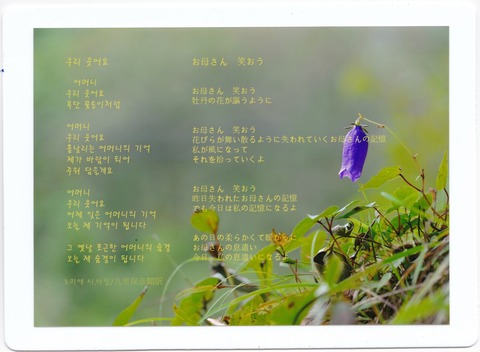 우리 웃어요
어머니
우리 웃어요
목단 꽃들이처럼
어머니
우리 웃어요
흩날리는 어머니의 기억
제가 바람이 되어
주워 담을게요
어머니
우리 웃어요
어제 잃은 어머니의 기억
오늘 제 기억이 됩니다
그 옛날 포근한 어머니의 숨결
오늘 제 숨결이 됩니다
お母さん 笑おう
お母さん 笑おう
牡丹の花が謳うように
お母さん 笑おう
花びらが舞い散るように失われていくお母さんの記憶
私が風になって
それを拾っていくよ
お母さん 笑おう
昨日失われたお母さんの記憶
でも今日は私の記憶になるよ
あの日の柔らかくて暖かな
お母さんの息遣い
今日、私の息遣いになるよ